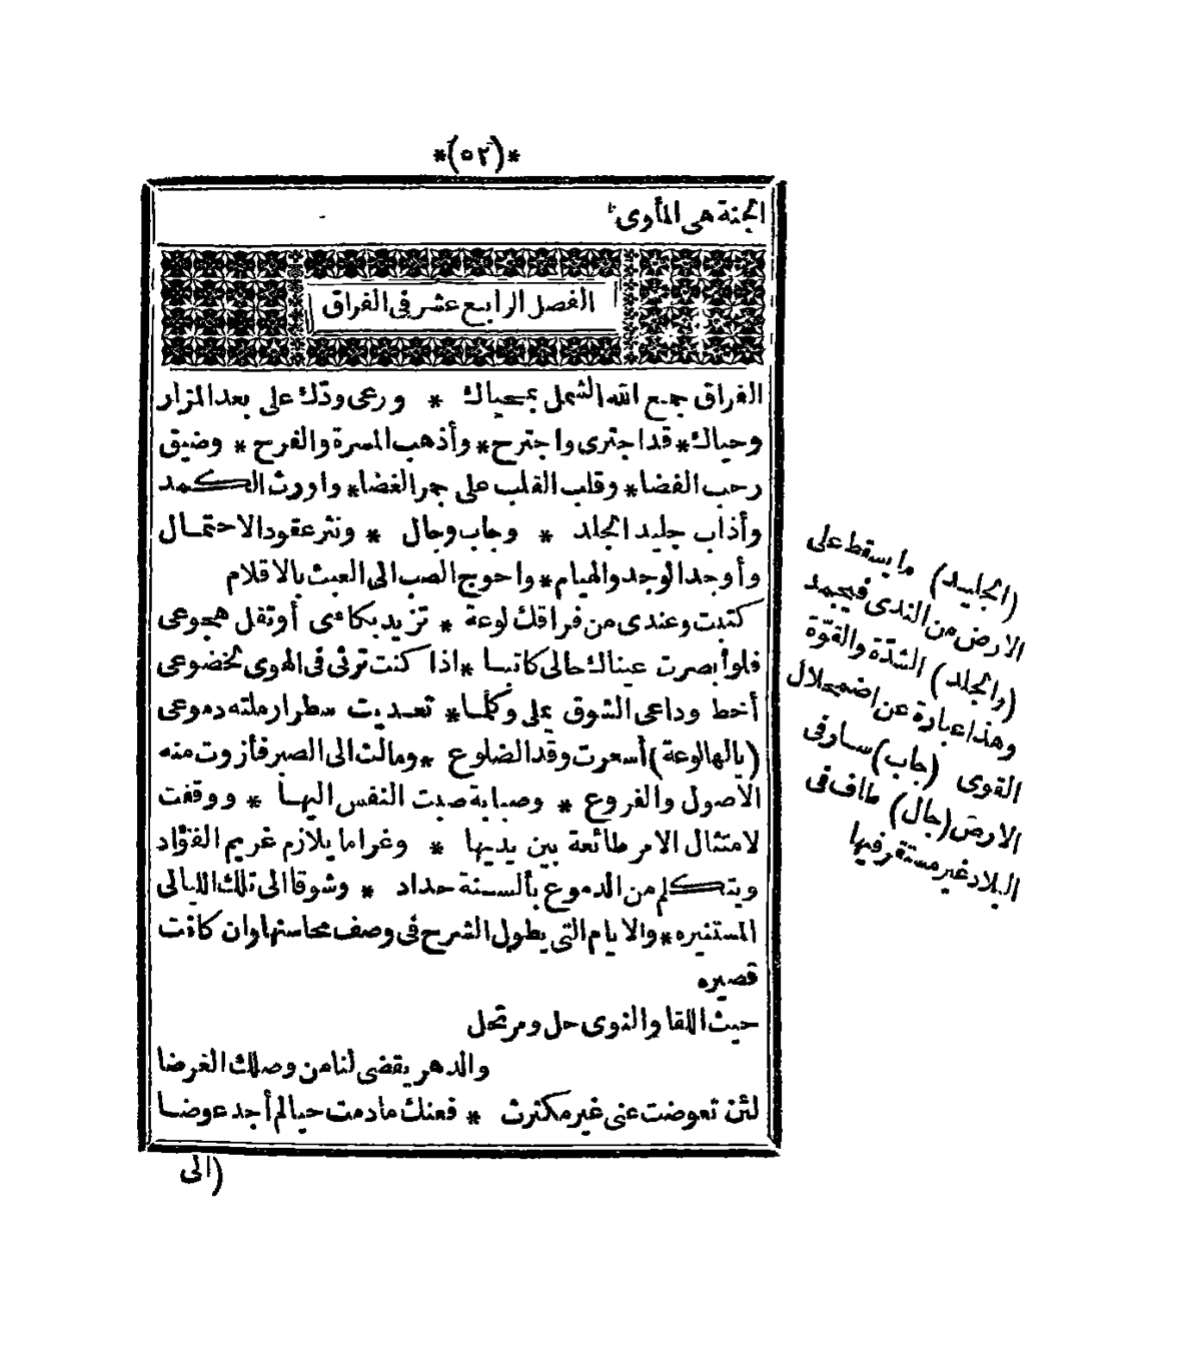 *(٥٢)*
الجنة هى المأوى
الفصل الرابع عشر فى الفراق
الفراق جمع الله الشمل بمحياك * ورعى ودّك على بعد المزار
وحياك * قد اجترى واجترح * وأذهب المسرة والفرح * وضيق
رحب الفضا * وقلب القلب على جمر الغضا * واورث الكمد
وأذاب جليد الجلد * وجاب وجال * ونثر عقود الاحتمال
وأوجد الوجد والهيام * واحوج الصب الى العبث بالاقلام
كتبت وعندى من فراقك لوعة * تزيد بكائى أو تقل هجوعى
فلو أبصرت عيناك حالى كاتبا * اذا كنت ترثى فى الهوى لخضوعى
أخط وداعى الشوق يملى وكلما * تعديت سطرا رملته دموعى
(يالها لوعة) أسعرت وقد الضلوع * ومالت الى الصبر فأزوت منه
الأصول والفروع * وصبابة صبت النفس اليها * ووقفت
لامتثال الامر طائعة بين يديها * وغراما يلازم غريم الفؤاد
ويتكلم من الدموع بألسنة حداد * وشوقا الى تلك الليالى
المستنيره * والايام التى يطول الشرح فى وصف محاسنها وان كانت
قصيره
حيث اللقا والنوى حل ومرتحل
والدهر يقضى لنا من وصلك الغرضا
لئن تعوضت عنى غير مكترث * فعنك مادمت حيا لم أجد عوضا
(الى
(الجليد) ما يسقط على
الارض من الندى فيجمد
(والجلد) الشدّة والقوّة
وهذا عبارة عن اضمحلال
القوى (جاب) سار فى
الارض (جال) طاف فى
البلاد غير مستقر فيها